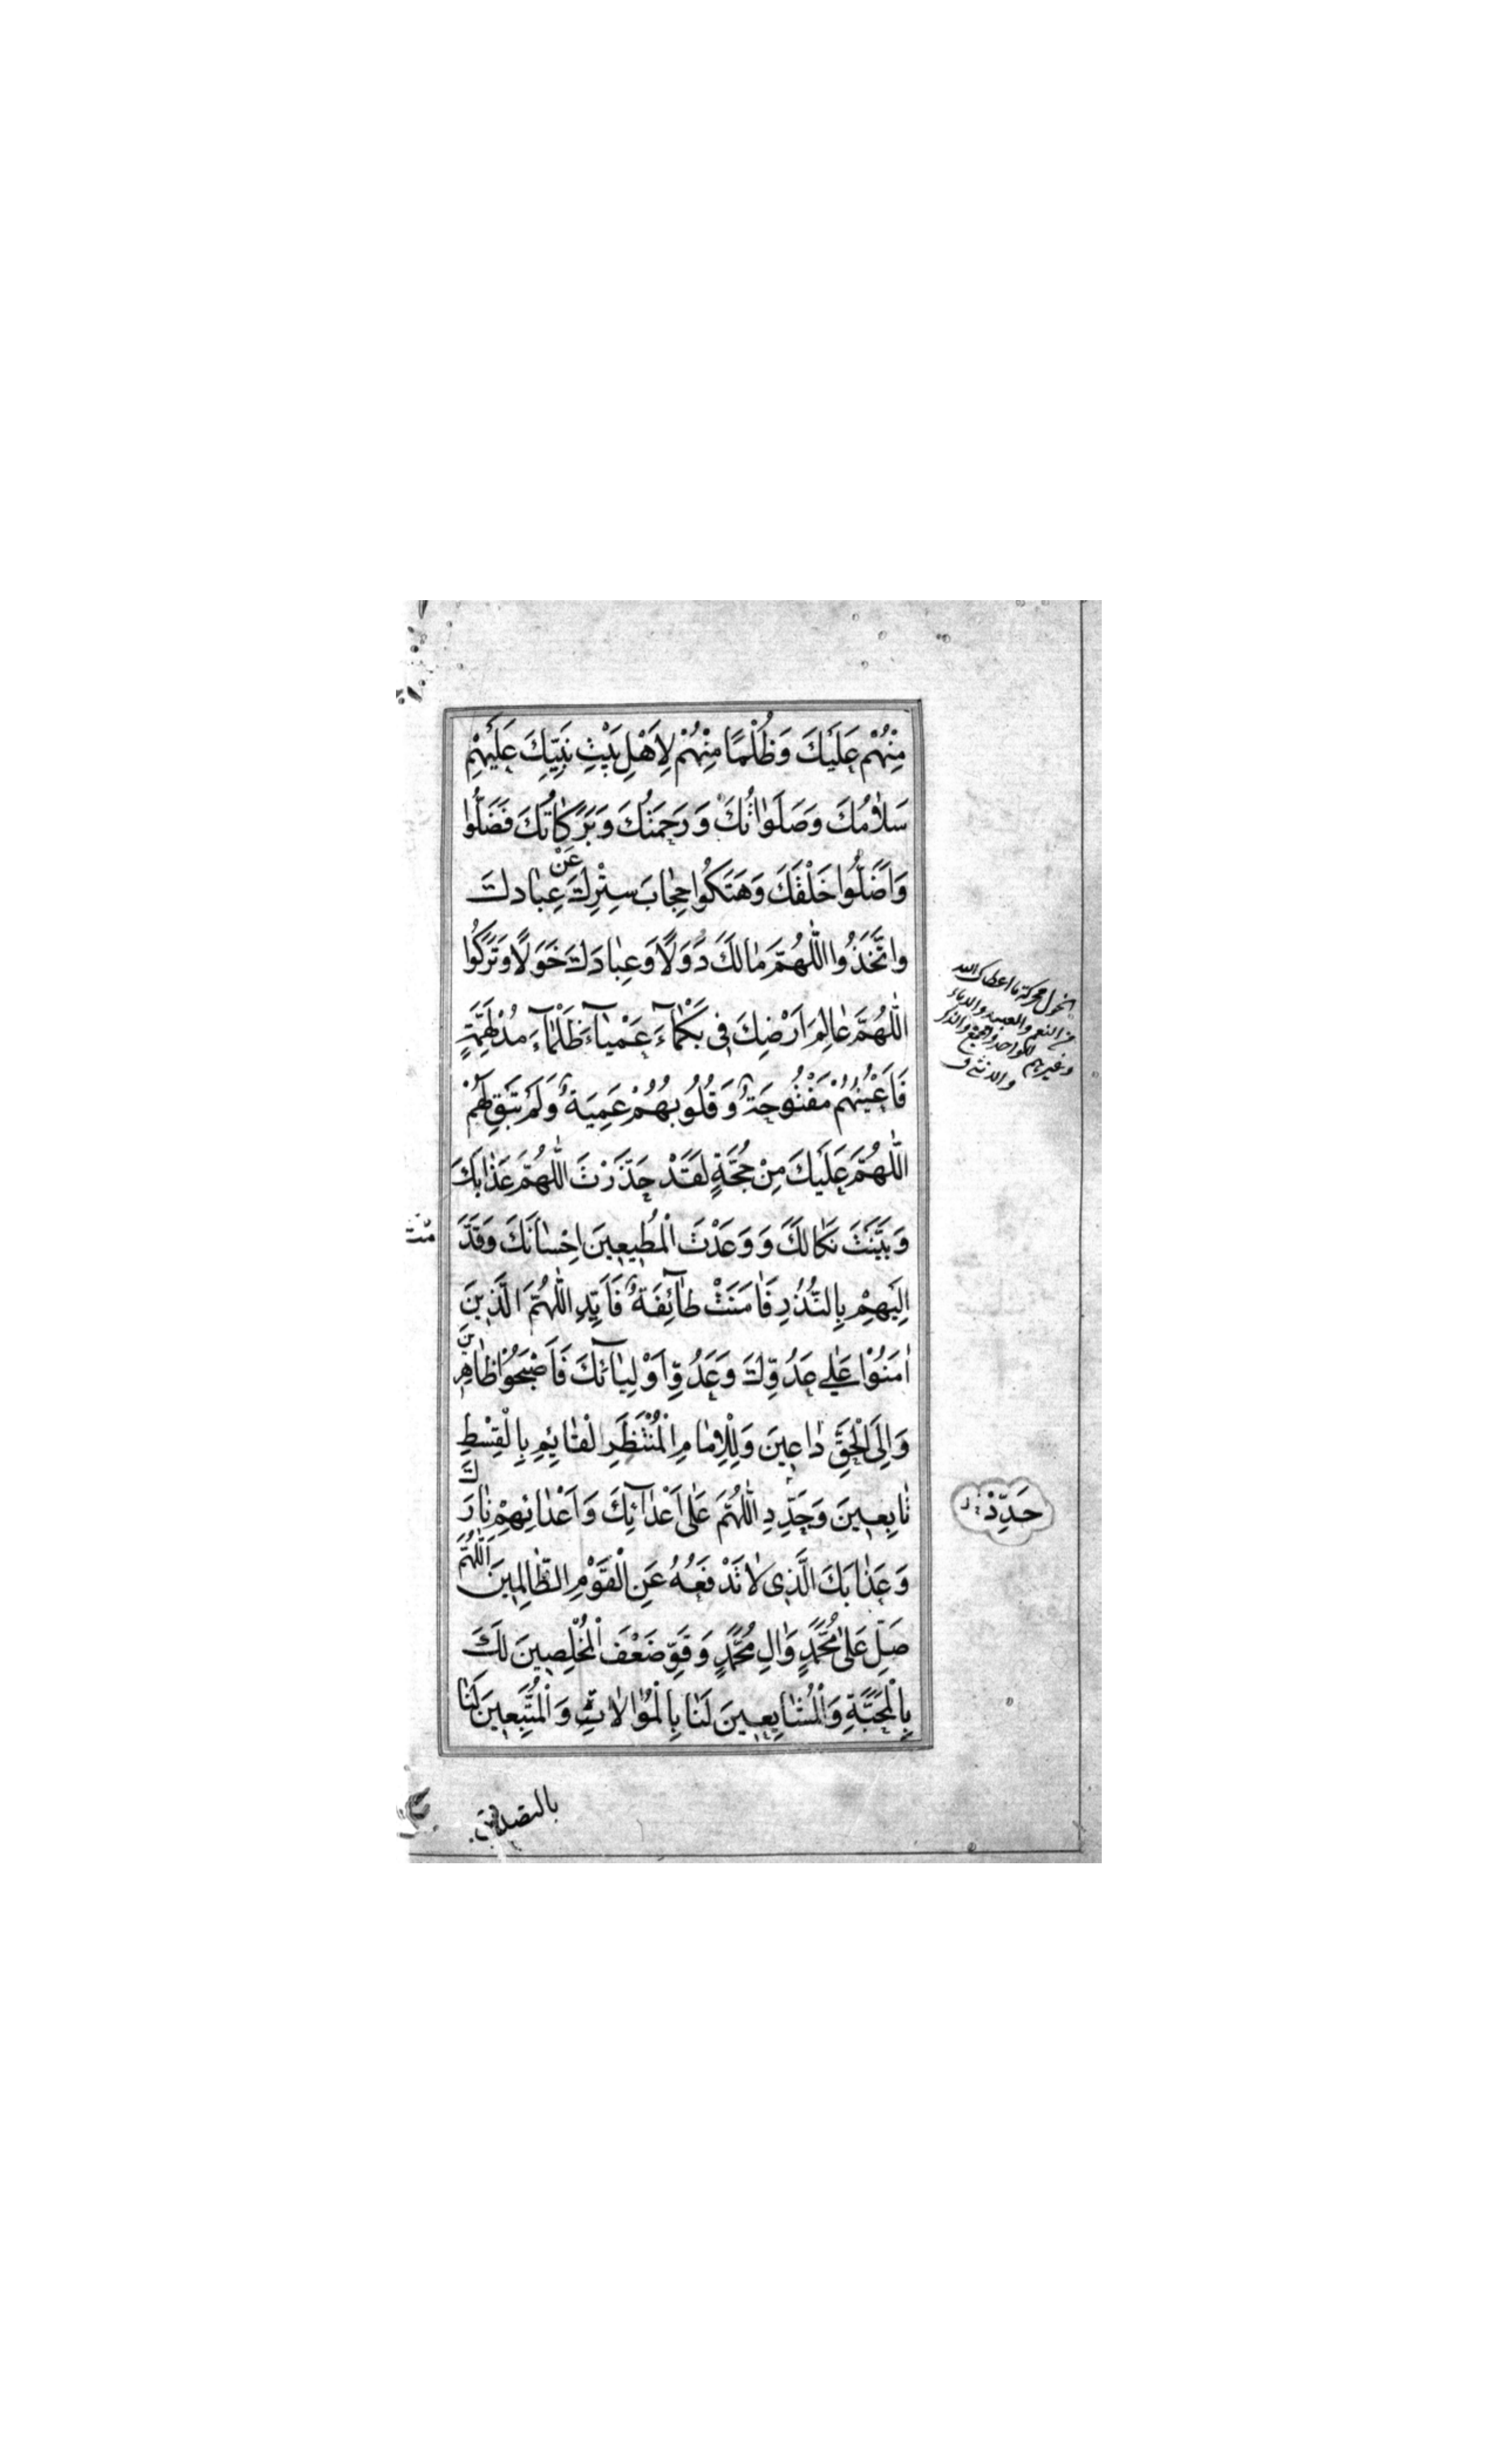 مِنْهُمْ عَلَيْكَ وَظُلْمًا مِنْهُمْ لِاَهْلِ بَيْتِ نَبِيِّكَ عَلَيْهِمْ
سَلامُكَ وَصَلَواتُكَ وَرَحْمَتُكَ وَبَرَكاتُكَ فَضَلُّوا
وَاَضَلُّوا خَلْقَكَ وَهَتَكُوا حِجابَ سِتْرِكَ عَنْ عِبادِكَ
وَاتَّخَذُوا اللّٰهُمَّ مالَكَ دُوَلًا وَعِبادَكَ خَوَلًا وَتَرَكُوا
اللّٰهُمَّ عالِمَ اَرْضِكَ فِي بَكْمآءَ عَمْيآءَ ظَلْمآءَ مُدْلَهِمَّةٍ
فَاَعْيُنُهُمْ مَفْتُوحَةٌ وَقُلُوبُهُمْ عَمِيَةٌ وَلَمْ تَبْقَ لَهُمُ
اللّٰهُمَّ عَلَيْكَ مِنْ حُجَّةٍ لَقَدْ حَذَّرْتَ اللّٰهُمَّ عَذابَكَ
وَبَيَّنْتَ نَكالَكَ وَوَعَدْتَ الْمُطِيعِينَ اِحْسانَكَ وَقَدَّ
مْتَ
اِلَيْهِمْ بِالنُّذُرِ فَامَنَتْ طآئِفَةٌ فَاَيِّدِ اللّٰهُمَّ الَّذِينَ
اٰمَنُوْا عَلٰي عَدُوِّكَ وَعَدُوِّ اَوْلِيآئِكَ فَاَصْبَحُوْا ظاهِرِينَ
وَاِلَى الْحَقِّ داعِينَ وَلِلْاِمامِ الْمُنْتَظَرِ الْقائِمِ بِالْقِسْطِ
تابِعِينَ وَجَدِّدِ اللّٰهُمَّ عَلٰى اَعْدآئِكَ وَاَعْدائِهِمْ نارَكَ
وَعَذابَكَ الَّذِي لا تَدْفَعُهُ عَنِ الْقَوْمِ الظّالِمِينَ اَللّٰهُمَّ
صَلِّ عَلٰى مُحَمَّدٍ وَالِ مُحَمَّدٍ وَقَوِّ ضَعْفَ الْمُخْلِصِينَ لَكَ
بِالْمَحَبَّةِ وَالْمُشايِعِينَ لَنا بِالْمُوالاتِ وَالْمُتَّبِعِينَ لَنا
بالتصديق
الخول محركة ما اعطاك الله
من النعم والعبيد والاماء
وغيرهم للواحد والجمع والذكر
والانثى ق
حَدِّدْ